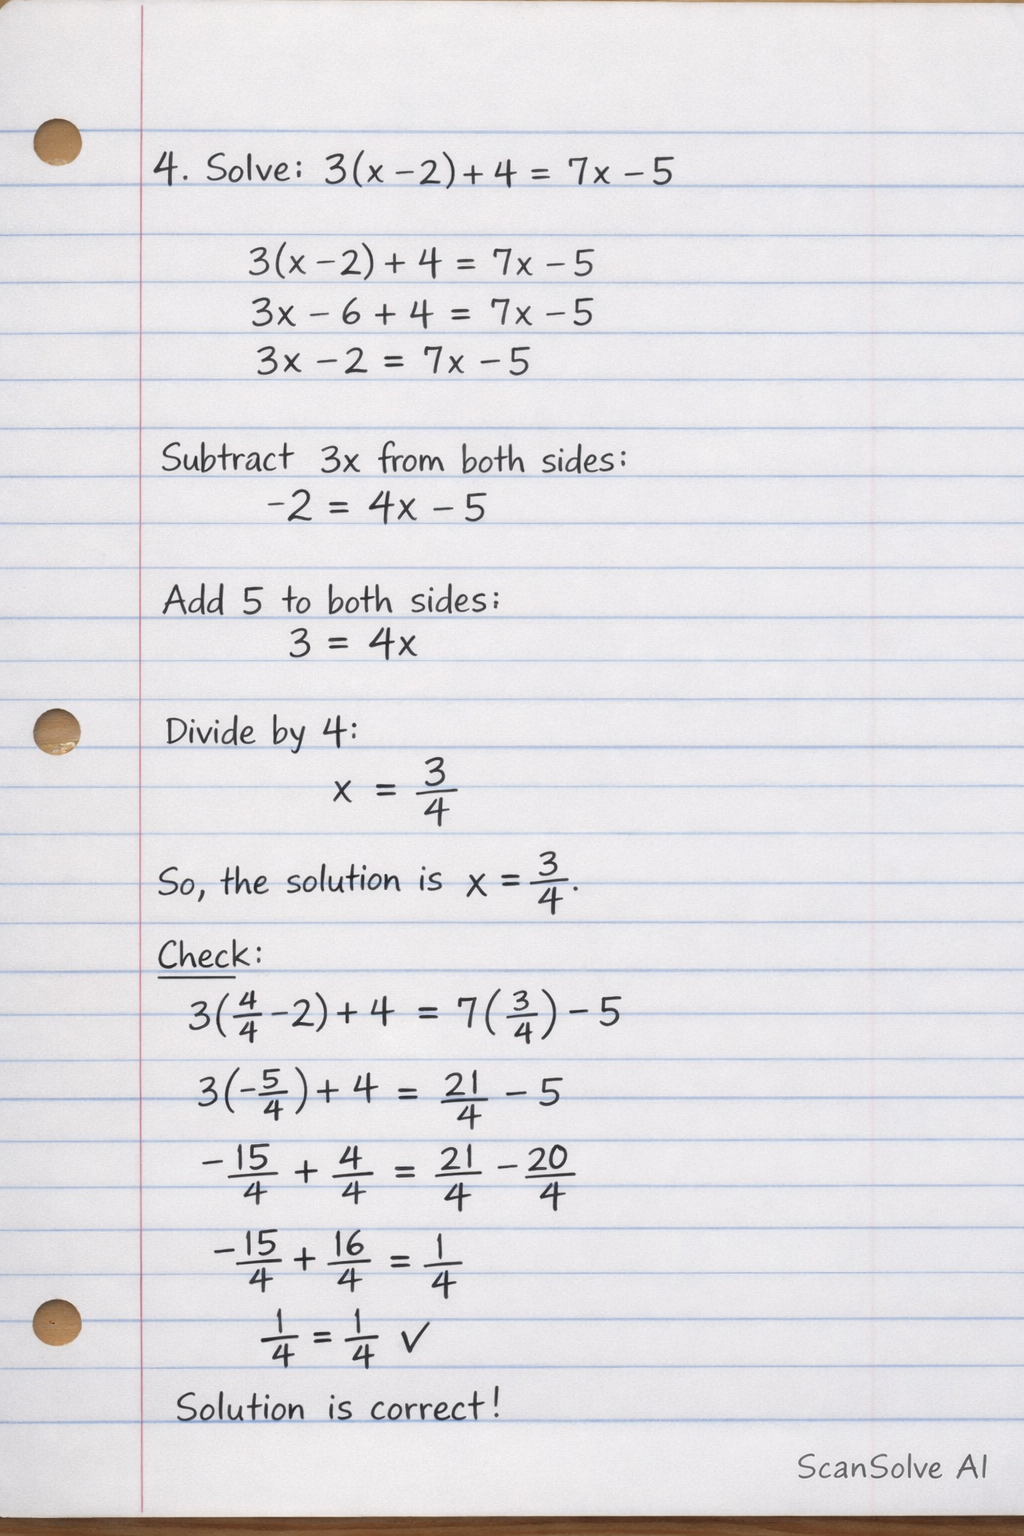 4. Solve: 3(x – 2) + 4 = 7x – 5
3(x – 2) + 4 = 7x – 5
3x – 6 + 4 = 7x – 5
3x – 2 = 7x – 5
Subtract 3x from both sides:
-2 = 4x – 5
Add 5 to both sides:
3 = 4x
Divide by 4:
x = 3/4
So, the solution is x = 3/4.
Check:
3(4/4 - 2) + 4 = 7(3/4) – 5
3(-5/4) + 4 = 21/4 – 5
-15/4 + 4/4 = 21/4 – 20/4
-15/4 + 16/4 = 1/4
1/4 = 1/4 ✓
Solution is correct!
ScanSolve AI